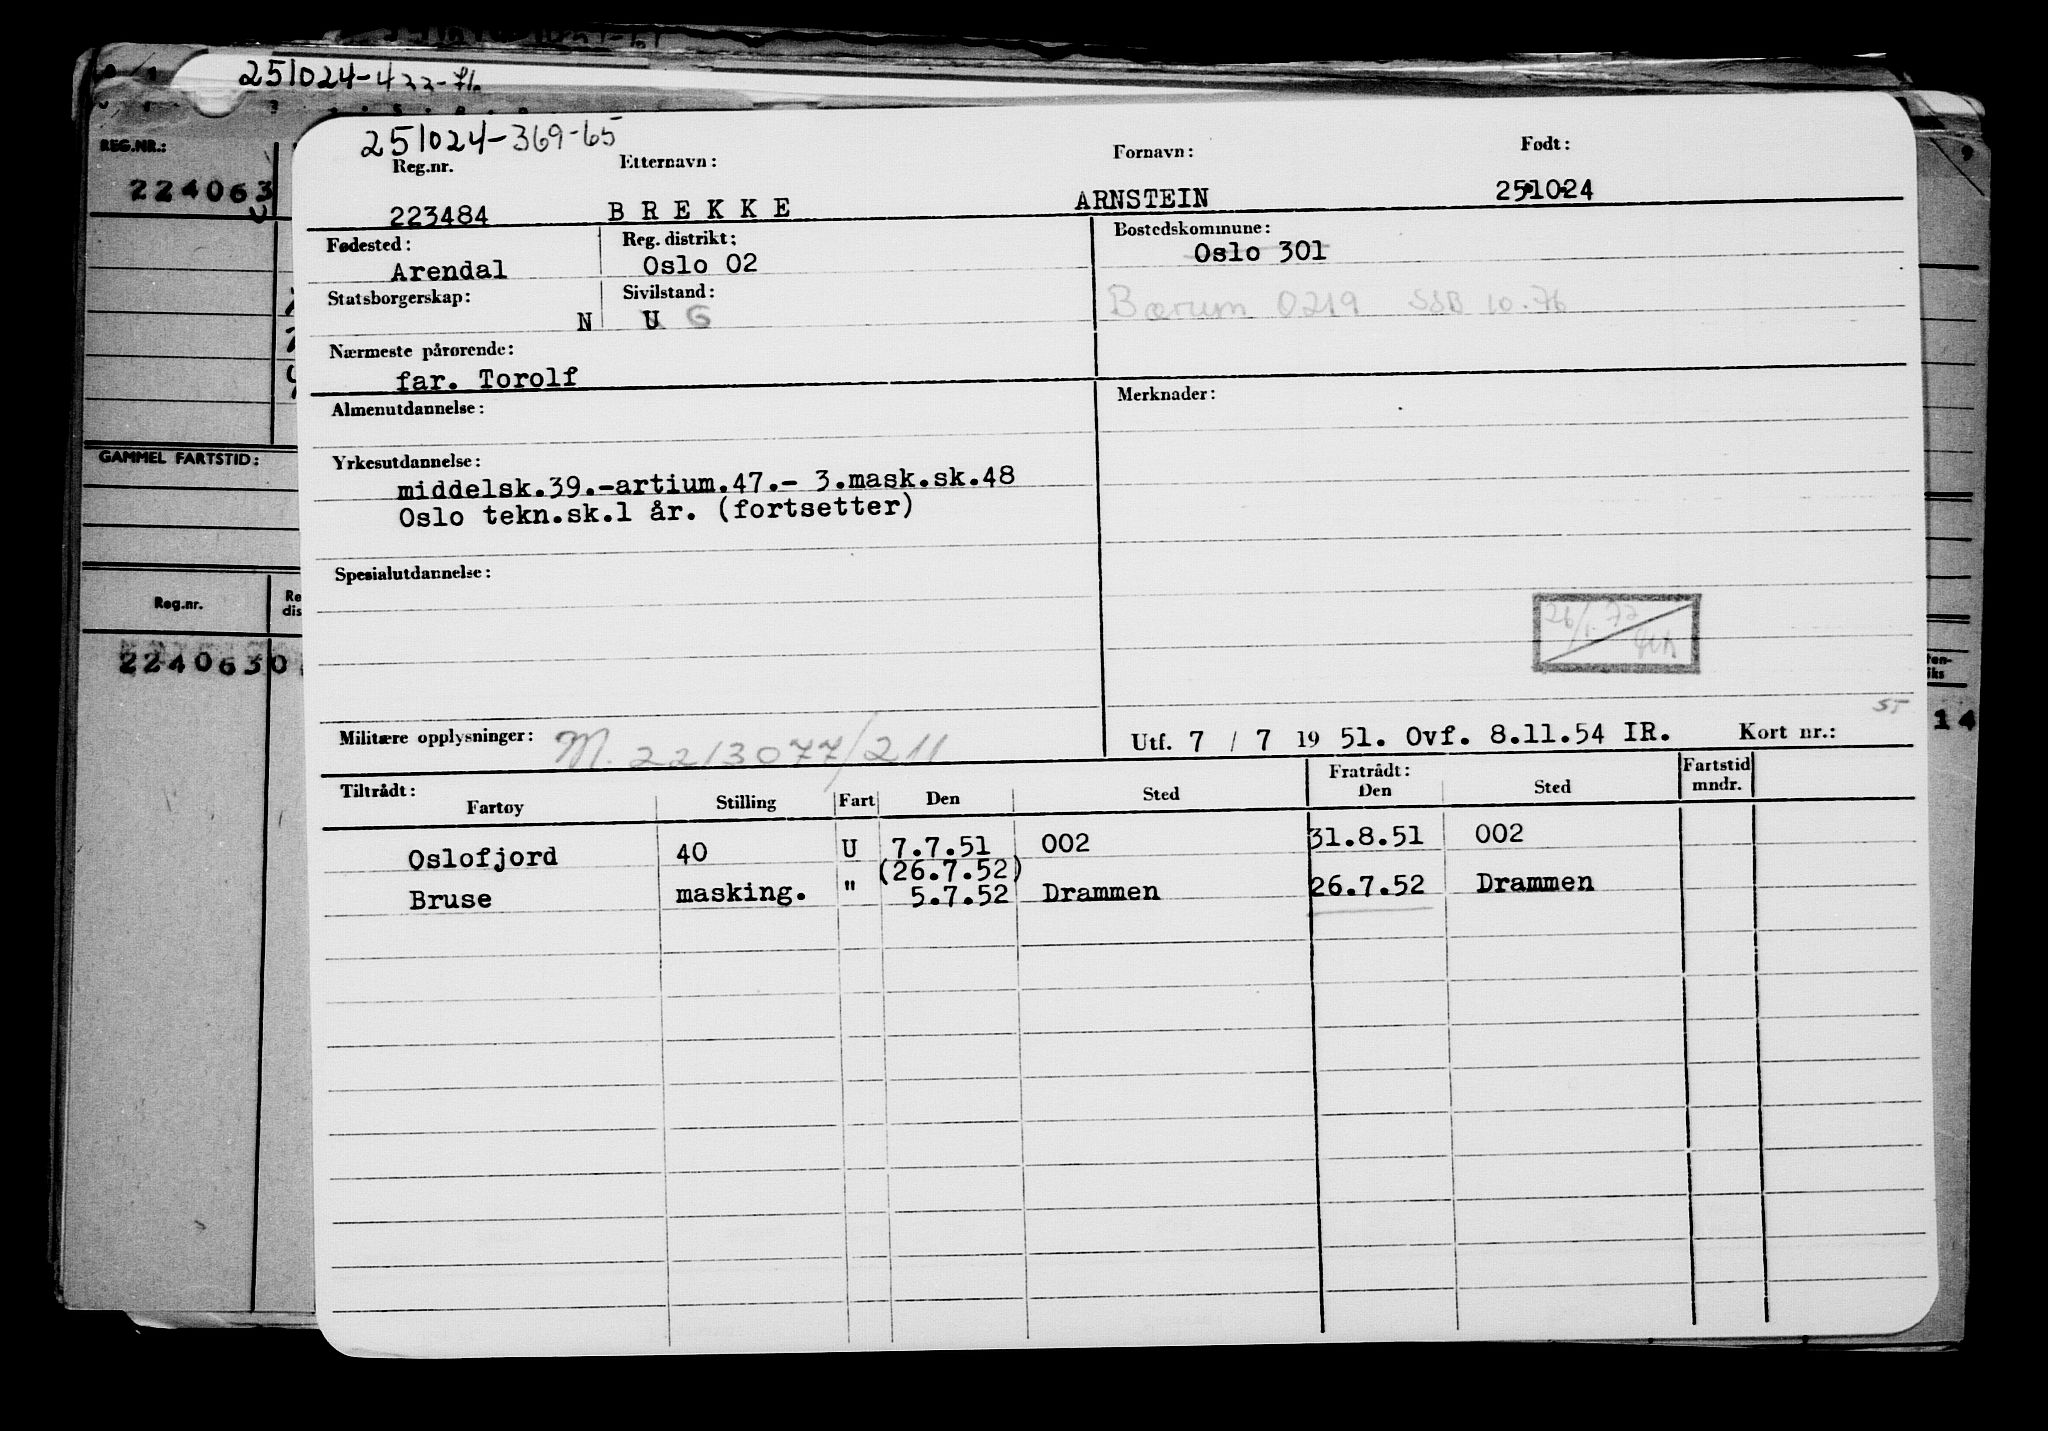 251024-433-71.
REG.NR.:
224063
GAMMEL FARTSTID:
Reg.nr.
2240630
14
251024-369-65
Reg.nr. Etternavn: Fornavn: Født:
223484 BREKKE ARNSTEIN 251024
Fødested: Reg. distrikt: Bostedskommune:
Arendal Oslo 02 Oslo 301
Statsborgerskap: Sivilstand:
N U G Bærum 0219 SSB 10.76
Nærmeste pårørende:
far. Torolf
Almenutdannelse: Merknader:
Yrkesutdannelse:
middelsk.39.-artium.47.- 3.mask.sk.48
Oslo tekn.sk.1 år. (fortsetter)
Spesialutdannelse:
26/1.77
Militære opplysninger: M. 2213077/211
Utf. 7 / 7 19 51. Ovf. 8.11.54 IR. Kort nr.:
Tiltrådt: Fratrådt: Fartstid
Fartøy Stilling Fart Den Sted Den Sted mndr.
Oslofjord 40 U 7.7.51 002 31.8.51 002
(26.7.52)
Bruse masking. " 5.7.52 Drammen 26.7.52 Drammen